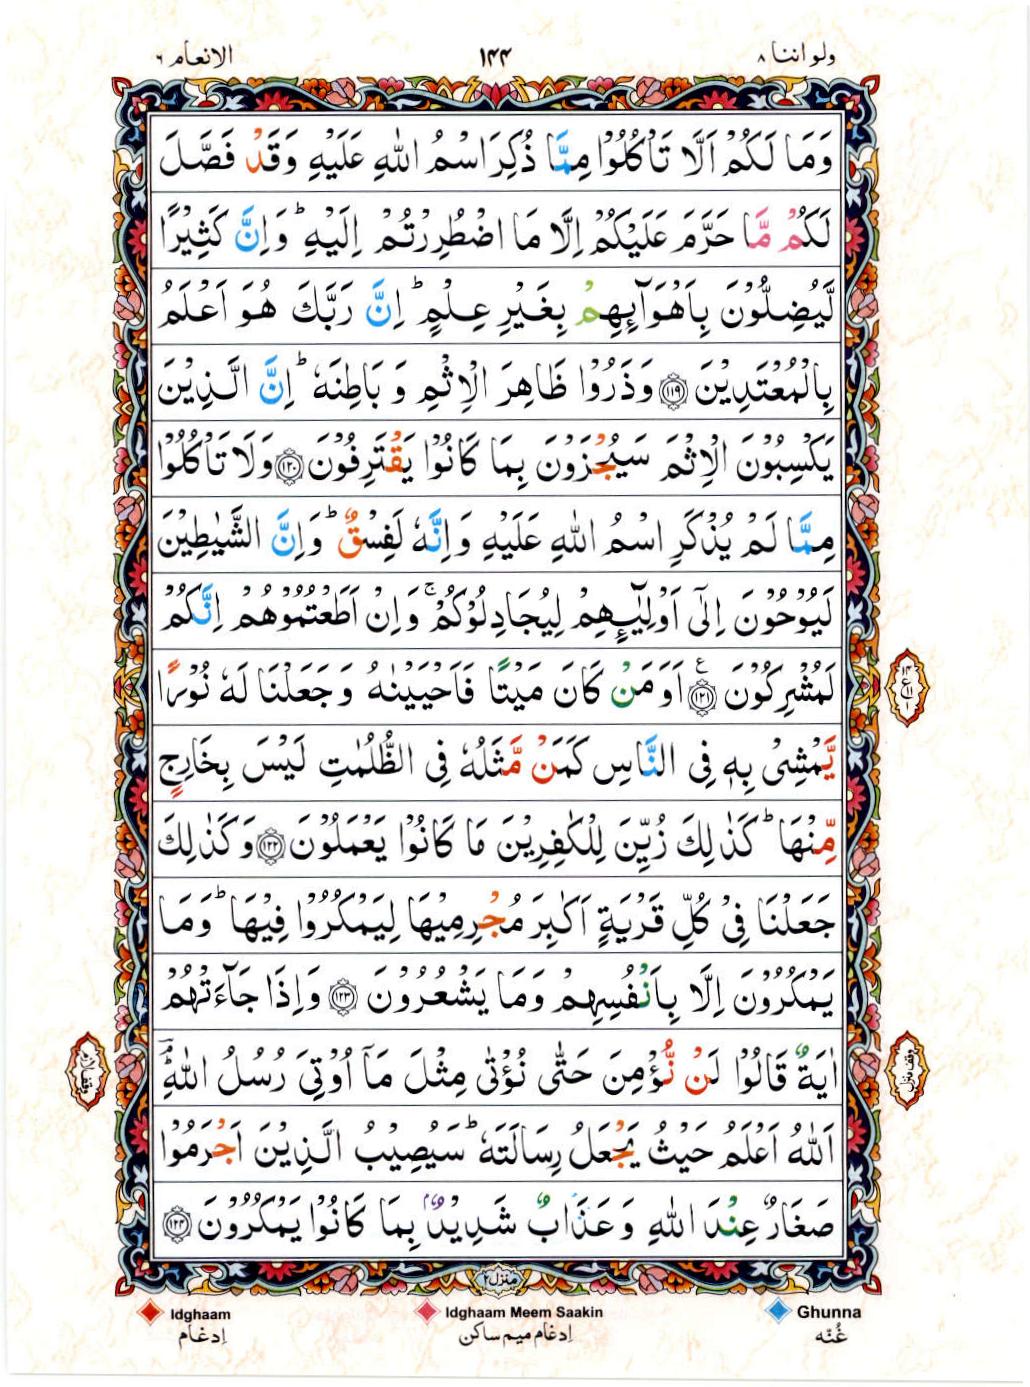 ولو اننا ۸ ۱۴۴ الانعام ۶
وَمَا لَكُمْ اَلَّا تَاْكُلُوْا مِمَّا ذُكِرَ اسْمُ اللّٰهِ عَلَيْهِ وَقَدْ فَصَّلَ
لَكُمْ مَّا حَرَّمَ عَلَيْكُمْ اِلَّا مَا اضْطُرِرْتُمْ اِلَيْهِ ؕ وَاِنَّ كَثِيْرًا
لَّيُضِلُّوْنَ بِاَهْوَآئِهِمْ بِغَيْرِ عِلْمٍ ؕ اِنَّ رَبَّكَ هُوَ اَعْلَمُ
بِالْمُعْتَدِيْنَ ﴿۱۱۹﴾ وَذَرُوْا ظَاهِرَ الْاِثْمِ وَ بَاطِنَهٗ ؕ اِنَّ الَّذِيْنَ
يَكْسِبُوْنَ الْاِثْمَ سَيُجْزَوْنَ بِمَا كَانُوْا يَقْتَرِفُوْنَ ﴿۱۲۰﴾ وَلَا تَاْكُلُوْا
مِمَّا لَمْ يُذْكَرِ اسْمُ اللّٰهِ عَلَيْهِ وَاِنَّهٗ لَفِسْقٌ ؕ وَاِنَّ الشَّيٰطِيْنَ
لَيُوْحُوْنَ اِلٰٓى اَوْلِيٰٓـئِهِمْ لِيُجَادِلُوْكُمْ ۚ وَاِنْ اَطَعْتُمُوْهُمْ اِنَّكُمْ
لَمُشْرِكُوْنَ ﴿۱۲۱﴾ ع اَوَمَنْ كَانَ مَيْتًا فَاَحْيَيْنٰهُ وَ جَعَلْنَا لَهٗ نُوْرًا
يَّمْشِىْ بِهٖ فِى النَّاسِ كَمَنْ مَّثَلُهٗ فِى الظُّلُمٰتِ لَيْسَ بِخَارِجٍ
مِّنْهَا ؕ كَذٰلِكَ زُيِّنَ لِلْكٰفِرِيْنَ مَا كَانُوْا يَعْمَلُوْنَ ﴿۱۲۲﴾ وَكَذٰلِكَ
جَعَلْنَا فِىْ كُلِّ قَرْيَةٍ اَكٰبِرَ مُجْرِمِيْهَا لِيَمْكُرُوْا فِيْهَا ؕ وَمَا
يَمْكُرُوْنَ اِلَّا بِاَنْفُسِهِمْ وَمَا يَشْعُرُوْنَ ﴿۱۲۳﴾ وَاِذَا جَآءَتْهُمْ
اٰيَةٌ قَالُوْا لَنْ نُّؤْمِنَ حَتّٰى نُؤْتٰى مِثْلَ مَآ اُوْتِىَ رُسُلُ اللّٰهِ ؕ
اَللّٰهُ اَعْلَمُ حَيْثُ يَجْعَلُ رِسَالَتَهٗ ؕ سَيُصِيْبُ الَّذِيْنَ اَجْرَمُوْا
صَغَارٌ عِنْدَ اللّٰهِ وَ عَذَابٌ شَدِيْدٌۢ بِمَا كَانُوْا يَمْكُرُوْنَ ﴿۱۲۴﴾
وقف لازم
وقف منزل
منزل ۲
Idghaam Idghaam Meem Saakin Ghunna
إدغام إدغام ميم ساكن غُنّه